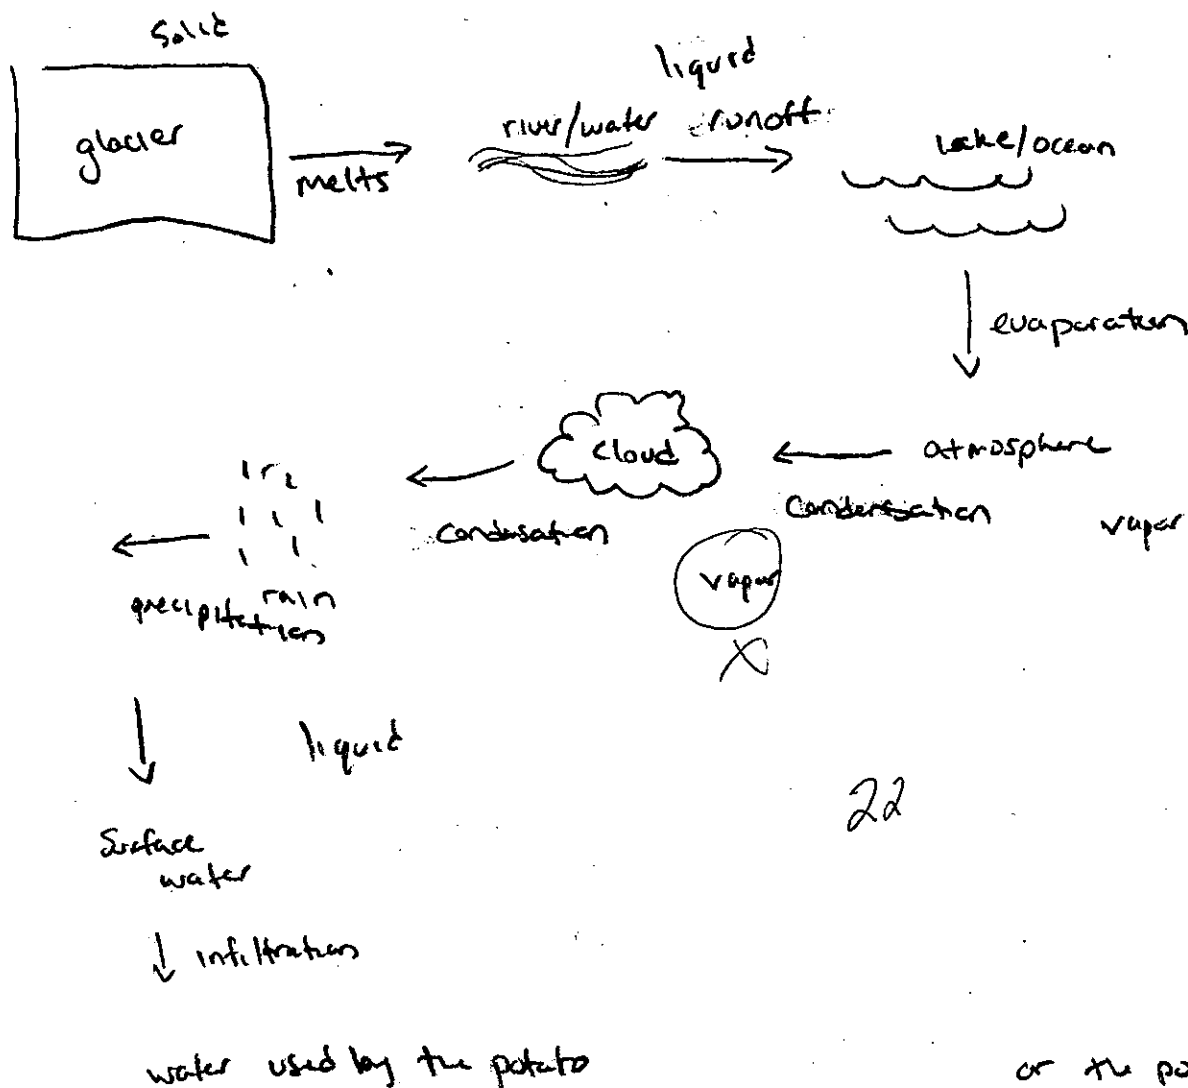 Solid
glacier
melts
river/water
liquid
runoff
lake/ocean
evaparation
atmosphere
vapor
Condensation
cloud
vapor
X
Condensation
rain
precipitation
liquid
22
Surface
water
infiltration
water used by the potato
or the po